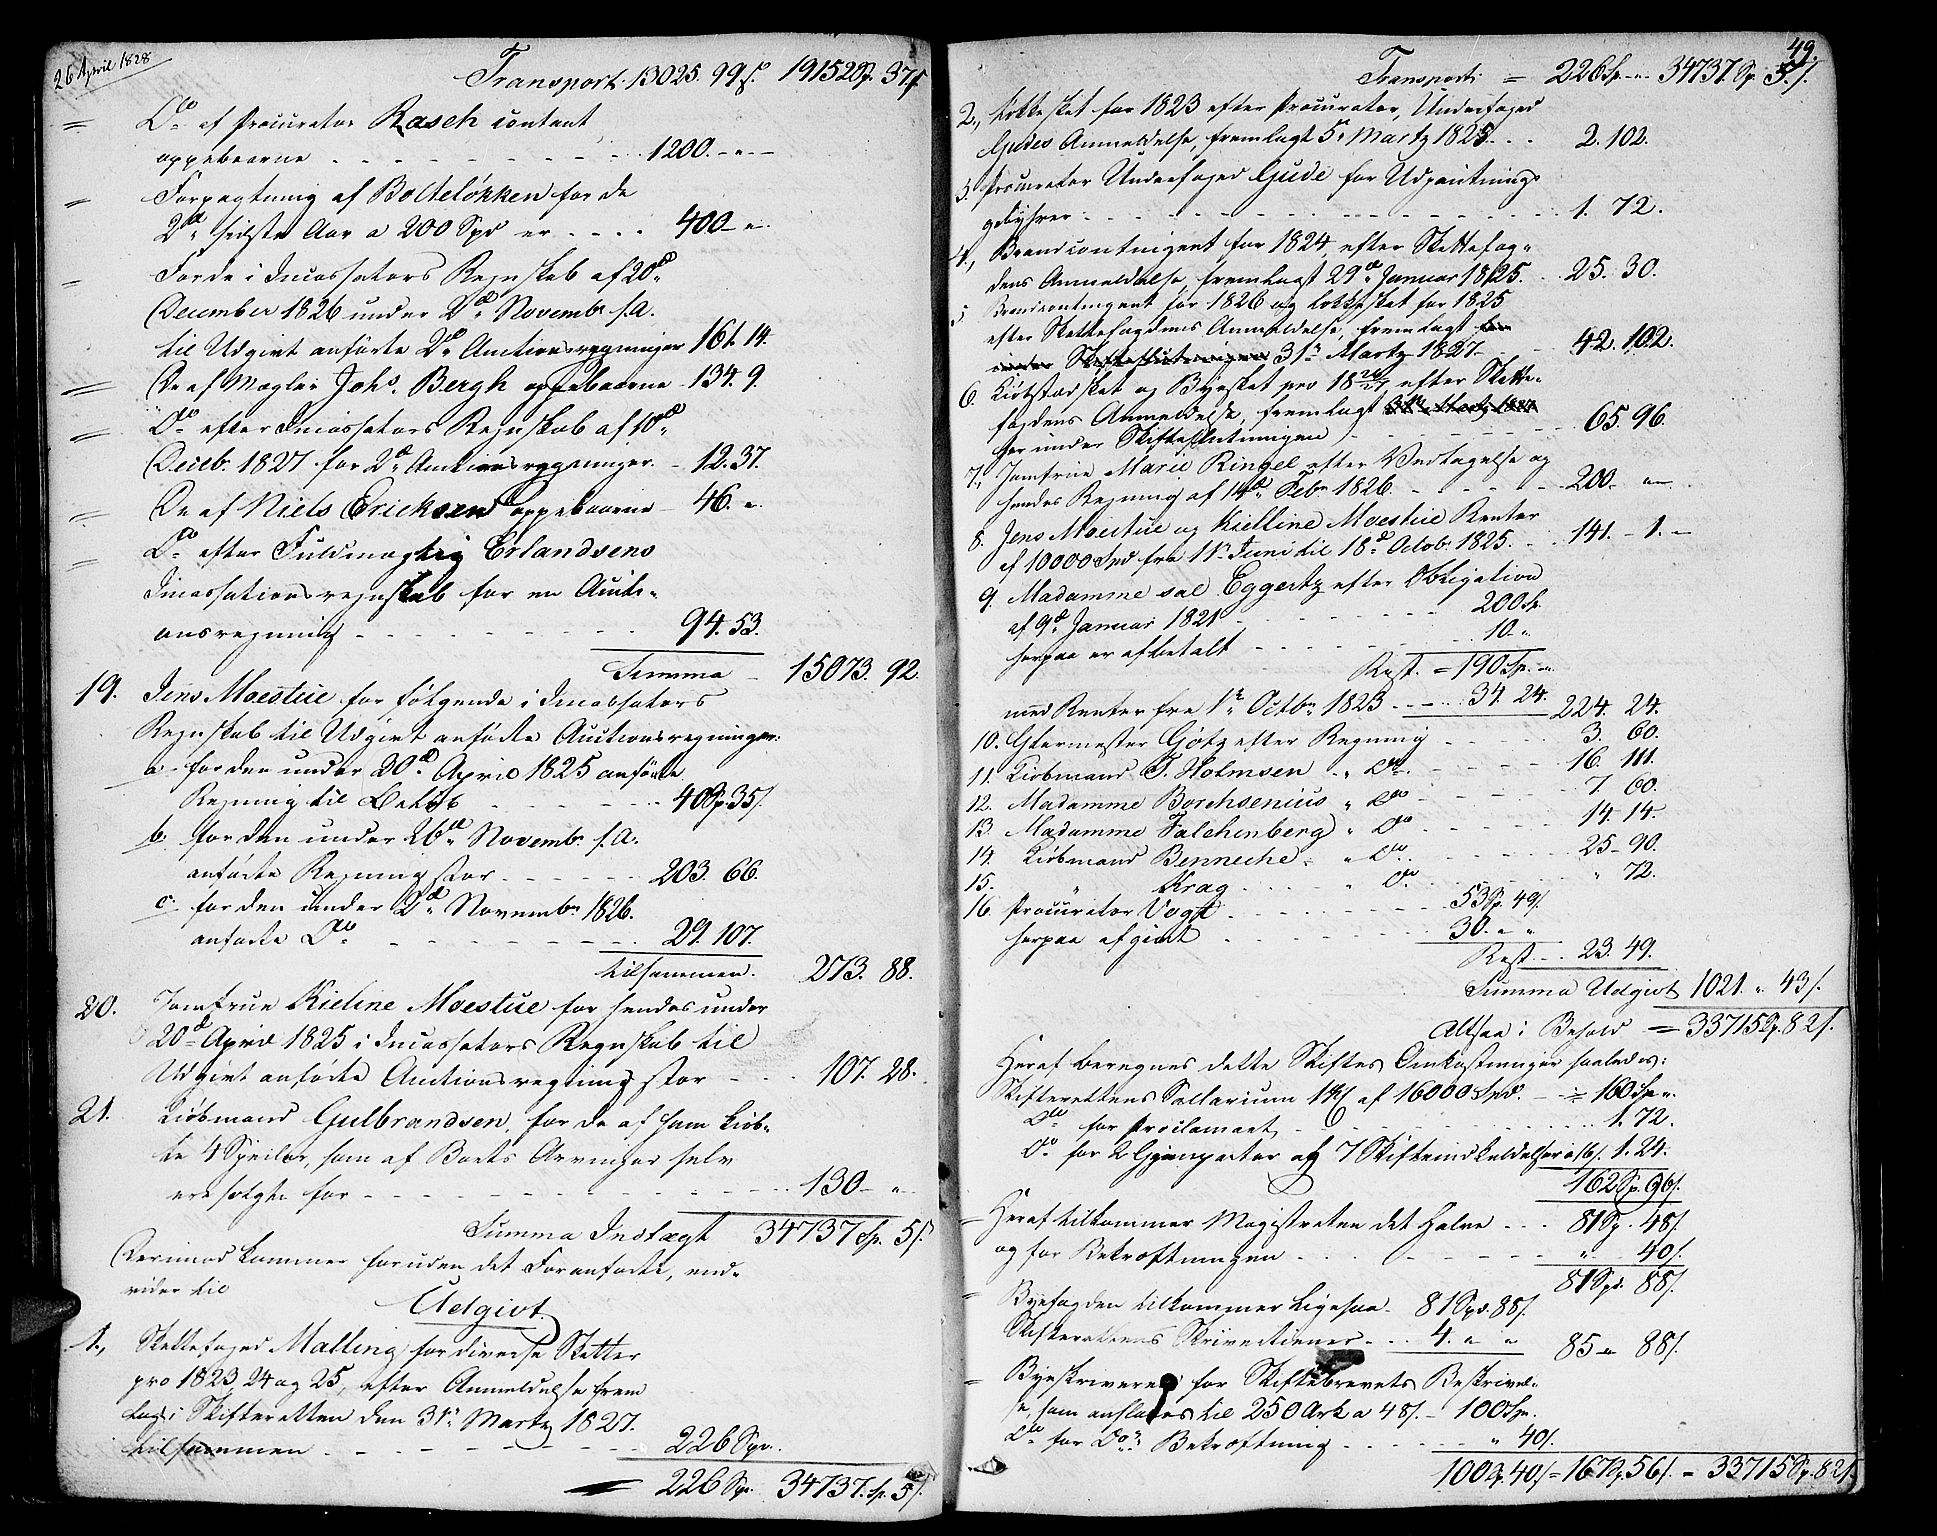 26 April 1828
Transport 13025. 99 s. 19152 Sp. 37 s.
= Do af Procurator Rasch contant
oppebaarne - - - 1200. - " -
= Forpagtning af Bolteløkken for de
2de sidste Aar a 200 Spd er - - - 400 - "
= For de i Incassators Regnskab af 20de
December 1826 under 2de Novembr s. A.
til Udgivt anførte 2de Auctionsregninger 161. 14.
= De af Mægler Johs. Bergh oppebaarne - 134. 9.
= Do efter Incassators Regnskab af 10de
Decbr. 1827 for 2de Auctionsregninger. - 12. 37.
= De af Niels Ericksen oppebaarne - 46. "
= Do efter Fuldmægtig Erlandsens
Incassations regnskab for en Aucti-
onsregning - - - 94. 53.
Summa - 15073. 92.
19. Jens Moestue for følgende i Incassators
Regnskab til Udgivt anførte Auctionsregninger:
a. for den under 20de April 1825 anførte
Regning til Beløb - - - 40 Sp 35 s.
b. for den under 26de Novembr. s. A.
anførte Regning stor - - - 203. 66.
c. for den under 2de Novembr 1826.
anførte Do - - - 29. 107.
tilsammen. 273. 88.
20. Jomfrue Kieline Moestue for hendes under
20de April 1825 i Incassators Regnskab til
Udgivt anførte Auctionsregning stor - - 107. 28.
21. Kiøbmand Gulbrandsen, for de af ham kiøb-
te 4 Speiler, som af Boets Arvinger selv
ere solgte for - - - 130 - "
Summa Indtægt 34737 Sp. 5 s.
Derimod kommer foruden det Foranførte, end-
videre til
Udgivt.
1., Skattefoged Malling for diverse Skatter
pro 1823, 24 og 25, efter Anmeldelse frem
lagt i Skifteretten den 31te Martz 1827.
tilsammen - - - 226 Spd.
= 226 Sp. 34737. Sp. 5 s.
49.
Transport = 226 Sp. - " - 34737. Sp 5 s.
2., Løkkeskat for 1823 efter Procurator, Underfoged
Gudes Anmeldelse, fremlagt 5te Martz 1825 - - 2. 102.
3. Procurator Underfoged Gude for Udpantnings
gebyhrer - - - 1. 72.
4., Brandcontingent for 1824, efter Skattefog-
dens Anmeldelse, fremlagt 29de Januar 1825. - 25. 30.
5 Brandcontingent for 1826 og Løkkeskat for 1825
efter Skattefogdens Anmeldelse, fremlagt
31te Martz 1827 - - 42. 102.
6. Kiøbstadskat og Byeskat pro 1826/27 efter Skatte-
fogdens Anmeldelse, fremlagt 31te Martz 1827
her under Skifteslutningen - - - 65. 96.
7., Jomfrue Marie Ringel efter Vedtagelse og
hendes Regning af 14de Febr 1826. - - - 200. - " -
8. Jens Moestue og Kielline Moestue Renter
af 10000 Spd fra 11te Juni til 18de Octob. 1825. - 141. - 1. -
9. Madamme sal Eggertz efter Obligation
af 9de Januar 1821 - - - 200 Sp.
herpaa er afbetalt - - - 10. "
Rest. = 190 Sp. - "
med Renter fra 1te Octbr 1823 - - - 34. 24. 224. 24.
10. Garmester Götz efter Regning - - 3. 60.
11. Kiøbmand T. Holmsen - " Do - - 16. 111.
12. Madamme Borchsenius " Do - - 7. 60.
13. Madamme Falchenberg " Do - - 14. 14.
14. Kiøbmand Benneche - " Do - - 25 - 90.
15. " Krag - - " Do - - " 72.
16. Procurator Vogt - - - 53 Sp. 49 s.
herpaa afgivt - - - 30. " "
Rest - - 23. 49.
Summa Udgivt 1021. " 43 s.
Altsaa i Behold = 33715 Sp. 82 s.
Heraf beregnes dette Skiftes Omkostninger saaledes:
Skifterettens Sallarium 1 % af 16000 Spd. - = 160 Sp ".
Do for Proclamaet - - - 1. 72.
Do for 2 Gjenparter af 7 Skifteindkaldelser a 16 s. 1. 24.
162 Sp. 96 s.
= Heraf tilkommer Magistraten det Halve - - - 81 Sp. 48 s.
og for Bekræftningen - - - " 40 s.
81 Spd. 88 s.
= Byefogden tilkommer ligesaa - 81 Spd. 88 s.
Skifterettens Skrivertiener - - - 4. " " 85 " 88 s.
= Byeskriveren for Skiftebrevets Beskrivel-
se, som anslaaes til 250 Ark a 48 s. - 100 Sp.
Do for Dos Bekræftning - - - " 40 s.
100 Sp. 40 s = 167 Sp. 56 s. = 33715 Sp. 82 s.